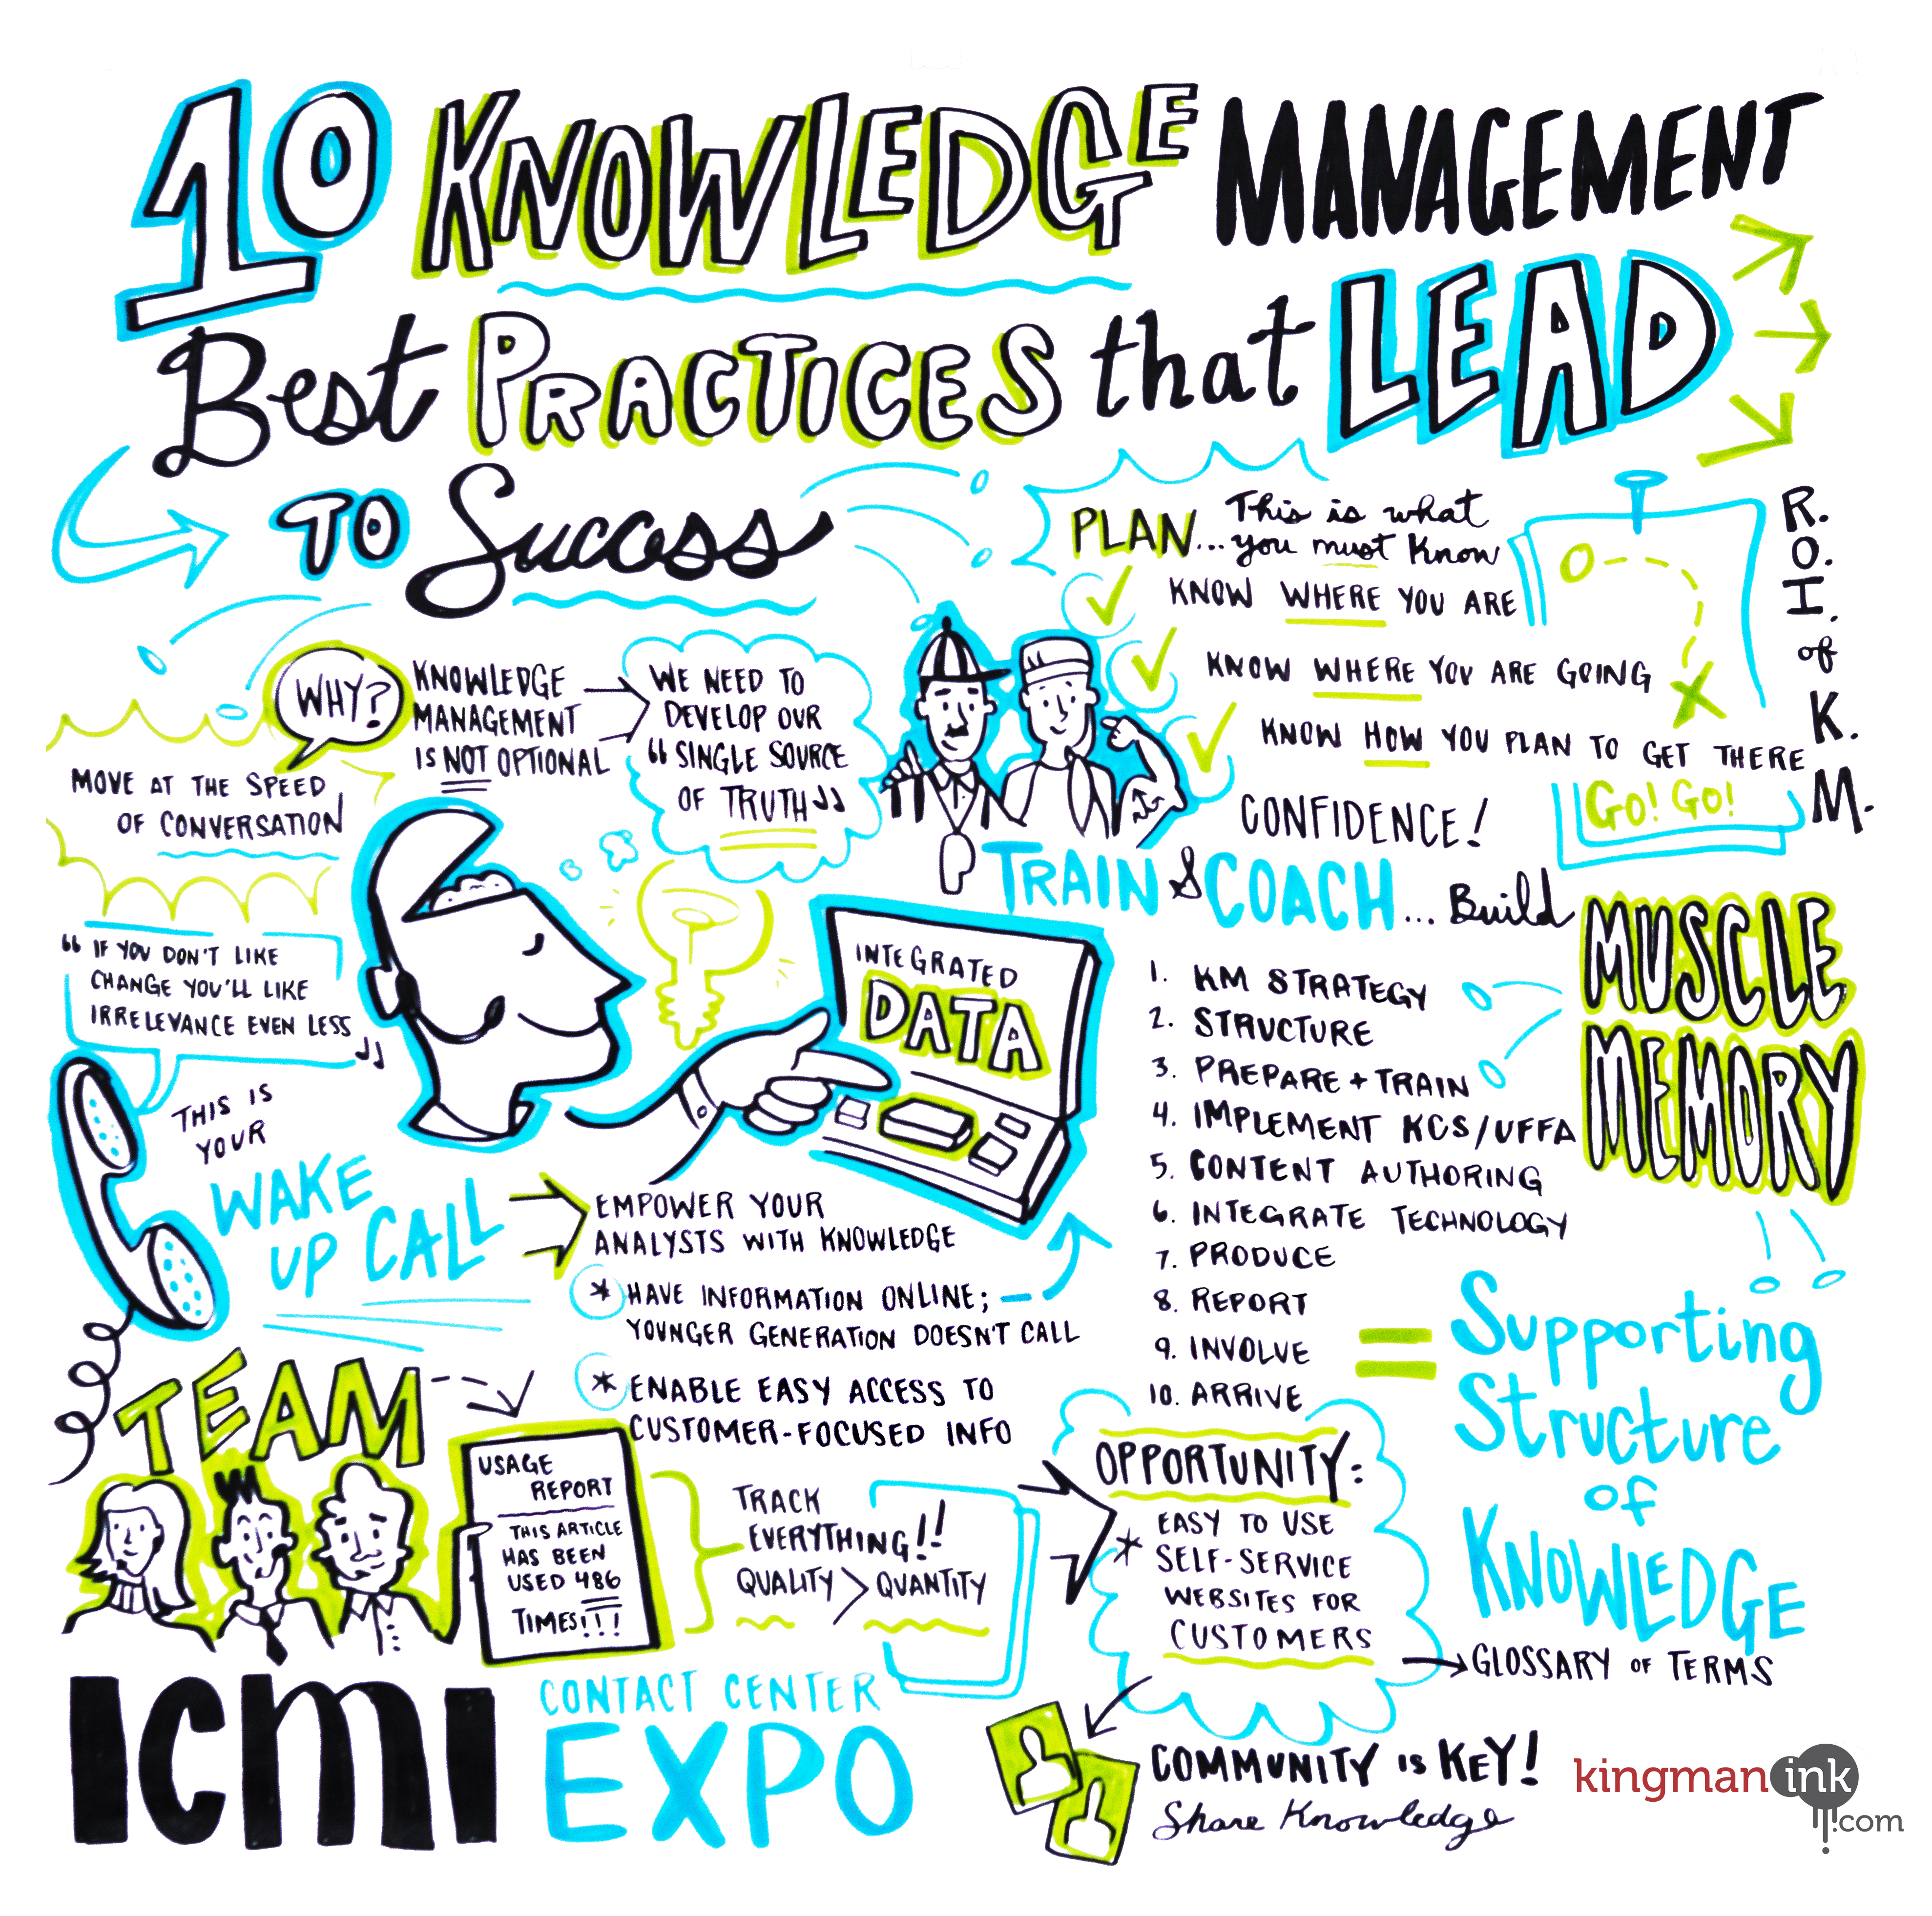 10 KNOWLEDGE MANAGEMENT
Best PRACTICES that LEAD
TO Success
PLAN... This is what
you must know
KNOW WHERE YOU ARE
KNOW WHERE YOU ARE GOING
KNOW HOW YOU PLAN TO GET THERE
GO! GO!
R.O.I. of K.M.
WHY?
KNOWLEDGE
MANAGEMENT
IS NOT OPTIONAL
WE NEED TO
DEVELOP OUR
“SINGLE SOURCE
OF TRUTH”
MOVE AT THE SPEED
OF CONVERSATION
CONFIDENCE!
TRAIN & COACH... Build
MUSCLE
MEMORY
“IF YOU DON'T LIKE
CHANGE YOU'LL LIKE
IRRELEVANCE EVEN LESS”
INTEGRATED
DATA
THIS IS
YOUR
WAKE
UP CALL
EMPOWER YOUR
ANALYSTS WITH KNOWLEDGE
* HAVE INFORMATION ONLINE;
YOUNGER GENERATION DOESN'T CALL
* ENABLE EASY ACCESS TO
CUSTOMER-FOCUSED INFO
1. KM STRATEGY
2. STRUCTURE
3. PREPARE + TRAIN
4. IMPLEMENT KCS/UFFA
5. CONTENT AUTHORING
6. INTEGRATE TECHNOLOGY
7. PRODUCE
8. REPORT
9. INVOLVE
10. ARRIVE
= Supporting
Structure
of
KNOWLEDGE
TEAM
USAGE
REPORT
THIS ARTICLE
HAS BEEN
USED 486
TIMES!!!
TRACK
EVERYTHING!!
QUALITY > QUANTITY
OPPORTUNITY:
EASY TO USE
* SELF-SERVICE
WEBSITES FOR
CUSTOMERS
GLOSSARY OF TERMS
COMMUNITY IS KEY!
Share Knowledge
ICMI
CONTACT CENTER
EXPO
kingman ink
.com